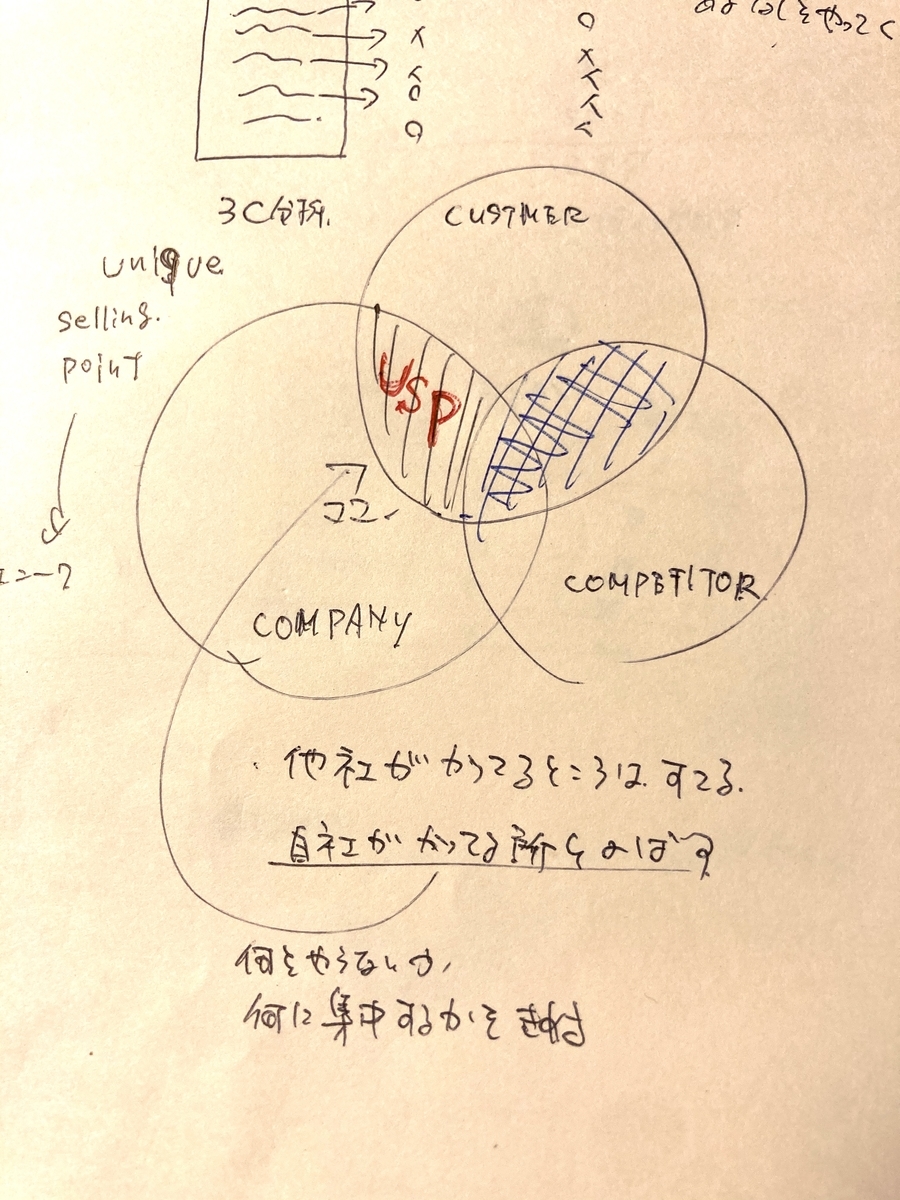 ○
×
○
×
○
3C分析.
CUSTMER
unique
selling.
point
USP
ココ.
COMPETITOR
COMPANY
・他社がかってるところはすてる.
自社がかってる所をのばす
何をやらないか,
何に集中するかを